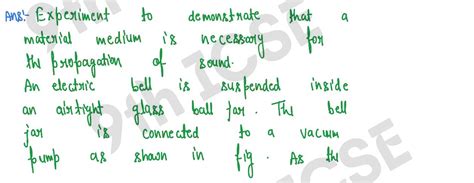 Ans:- Experiment to demonstrate that a
material medium is necessary for
the propagation of sound.
An electric bell is suspended inside
an airtight glass ball jar. The bell
jar is connected to a vacum
pump as shown in fig. As the
9th ICSE
9th ICSE